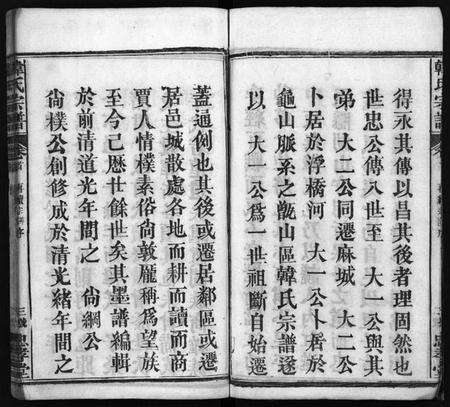 得永其傳以昌其後者理固然也
世忠公傳入世于 大一公與其
弟 大二公同遷麻城 大二公
卜居於浮橋河 大一公卜居於
龜山脈系之甑山區韓氏宗譜遂
以 大一公爲一世祖斷自始遷
蓋通例也其後或遷居鄰區或遷
居邑城散處各地而耕而讀而商
賈人情樸素俗尙敦龐稱爲望族
至今己歷廿餘世矣其墨譜編輯
於前清道光年間之 尙綱公
尙樸公創修成於清光緒年間之
韓氏宗譜
三號
韓氏宗譜